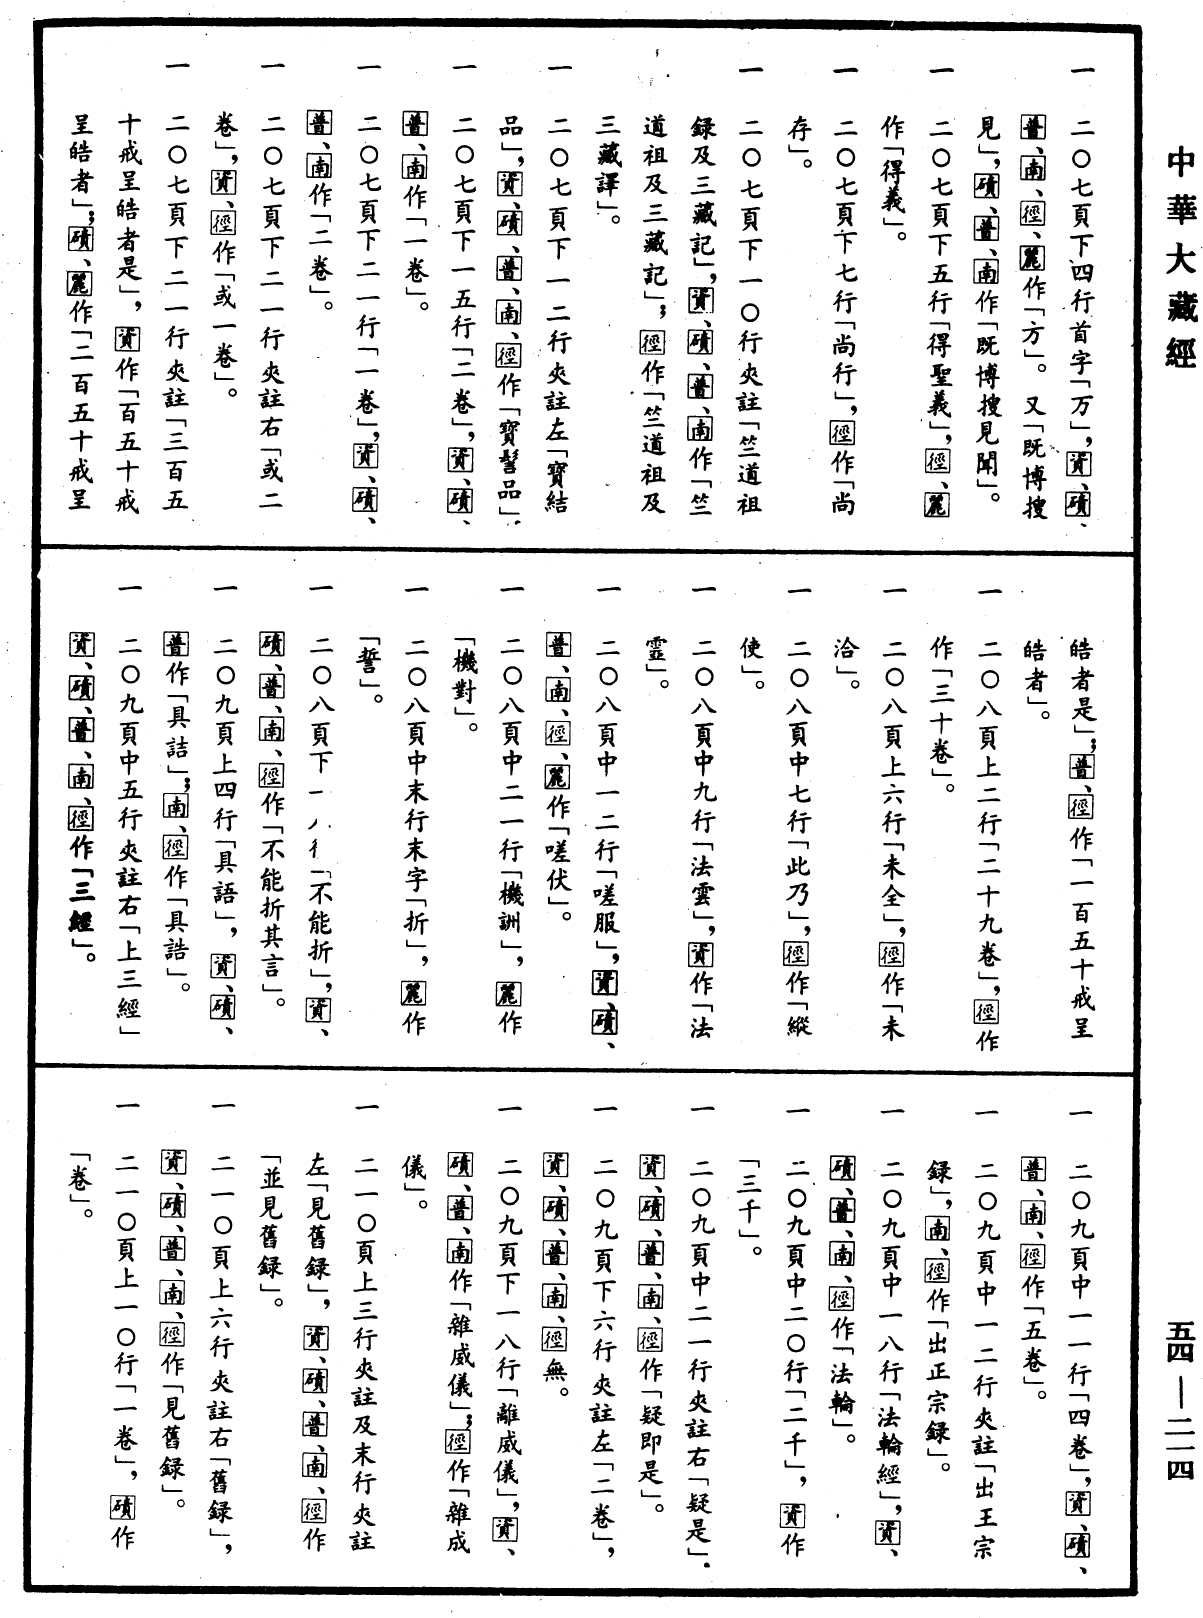 中華大藏經
一　二〇七頁下四行首字「万」，資、磧、
普、南、徑、麗作「方」。又「既博搜
見」，磧、普、南作「既博搜見聞」。
一　二〇七頁下五行「得聖義」，徑、麗
作「得義」。
一　二〇七頁下七行「尚行」，徑作「尚
存」。
一　二〇七頁下一〇行夾註「竺道祖
録及三藏記」，資、磧、普、南作「竺
道祖及三藏記」；徑作「竺道祖及
三藏譯」。
一　二〇七頁下一二行夾註左「寶結
品」，資、磧、普、南、徑作「寶髻品」。
一　二〇七頁下一五行「二卷」，資、磧、
普、南作「一卷」。
一　二〇七頁下二一行「一卷」，資、磧、
普、南作「二卷」。
一　二〇七頁下二一行夾註右「或二
卷」，資、徑作「或一卷」。
一　二〇七頁下二一行夾註「三百五
十戒呈皓者是」，資作「百五十戒
呈皓者」；磧、麗作「二百五十戒呈
皓者是」；普、徑作「一百五十戒呈
皓者」。
一　二〇八頁上二行「二十九卷」，徑作
作「三十卷」。
一　二〇八頁上六行「未全」，徑作「未
洽」。
一　二〇八頁中七行「此乃」，徑作「縱
使」。
一　二〇八頁中九行「法雲」，資作「法
靈」。
一　二〇八頁中一二行「嗟服」，資、磧、
普、南、徑、麗作「嗟伏」。
一　二〇八頁中二一行「機訓」，麗作
「機對」。
一　二〇八頁中末行末字「折」，麗作
「誓」。
一　二〇八頁下一八行「不能折」，資、
磧、普、南、徑作「不能折其言」。
一　二〇九頁上四行「具語」，資、磧、
普作「具詰」；南、徑作「具誥」。
一　二〇九頁中五行夾註右「上三經」
資、磧、普、南、徑作「三經」。
一　二〇九頁中一一行「四卷」，資、磧、
普、南、徑作「五卷」。
一　二〇九頁中一二行夾註「出王宗
録」，南、徑作「出正宗録」。
一　二〇九頁中一八行「法輪經」，資、
磧、普、南、徑作「法輪」。
一　二〇九頁中二〇行「二千」，資作
「三千」。
一　二〇九頁中二一行夾註右「疑是」，
資、磧、普、南、徑作「疑即是」。
一　二〇九頁下六行夾註左「二卷」，
資、磧、普、南、徑無。
一　二〇九頁下一八行「離威儀」，資、
磧、普、南作「雜威儀」；徑作「雜成
儀」。
一　二一〇頁上三行夾註及末行夾註
左「見舊録」，資、磧、普、南、徑作
「並見舊録」。
一　二一〇頁上六行夾註右「舊録」，
資、磧、普、南、徑作「見舊録」。
一　二一〇頁上一〇行「一卷」，磧作
「卷」。
五四—二一四